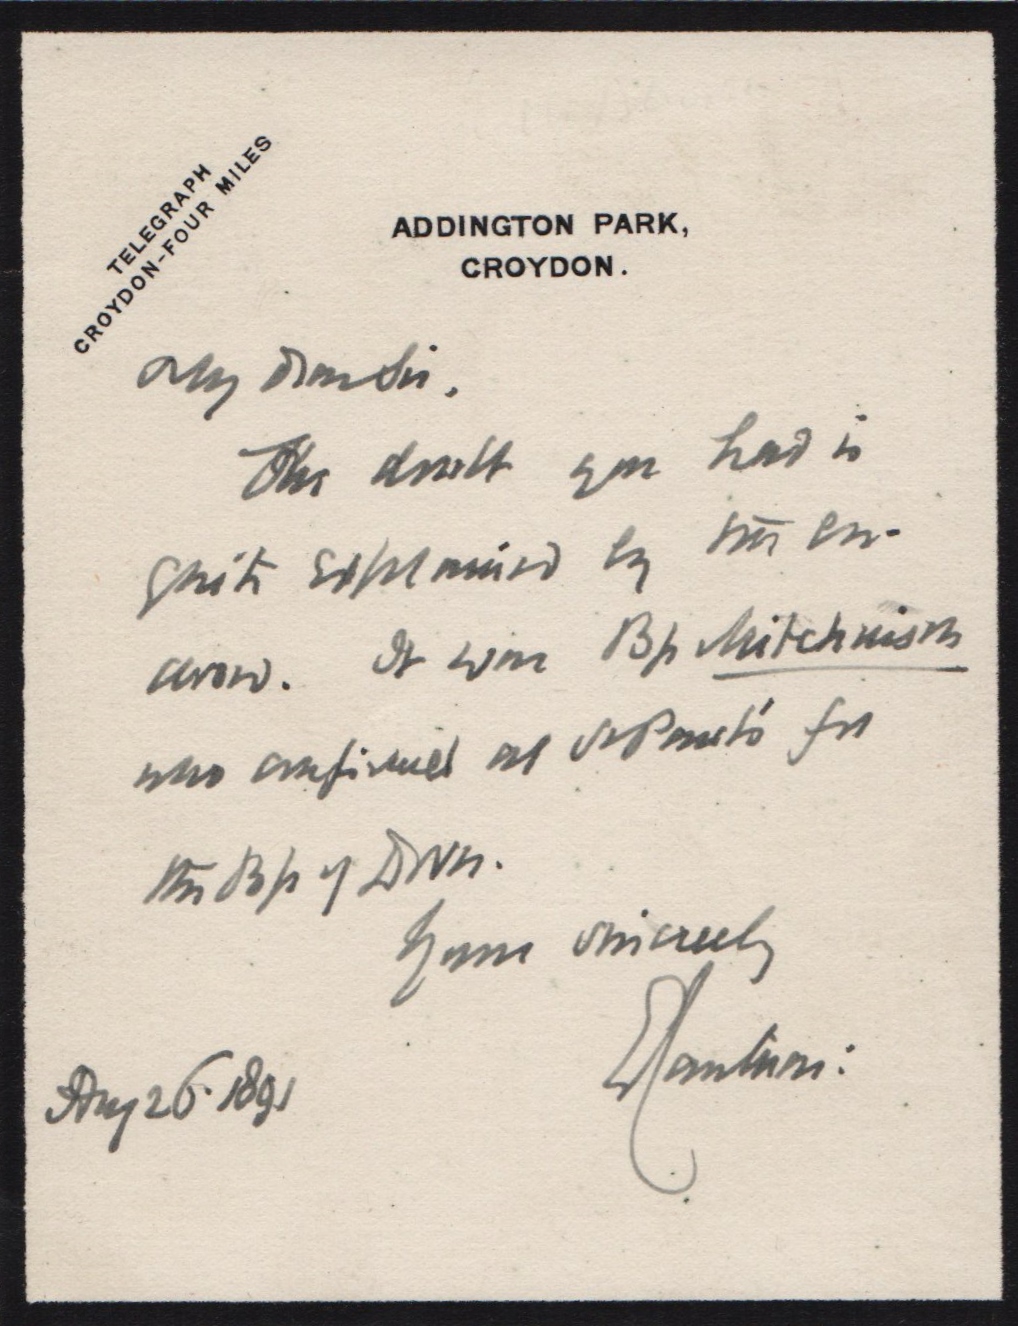 TELEGRAPH
CROYDON-FOUR MILES
ADDINGTON PARK,
CROYDON.
My Dear Sir,
The doubt you had is
quite explained by the en-
closed. It was Bp Mitchinson
who confirmed at St Paul's for
the Bp of Dover.
Yours sincerely
Edw Cantuar:
Aug 26. 1891